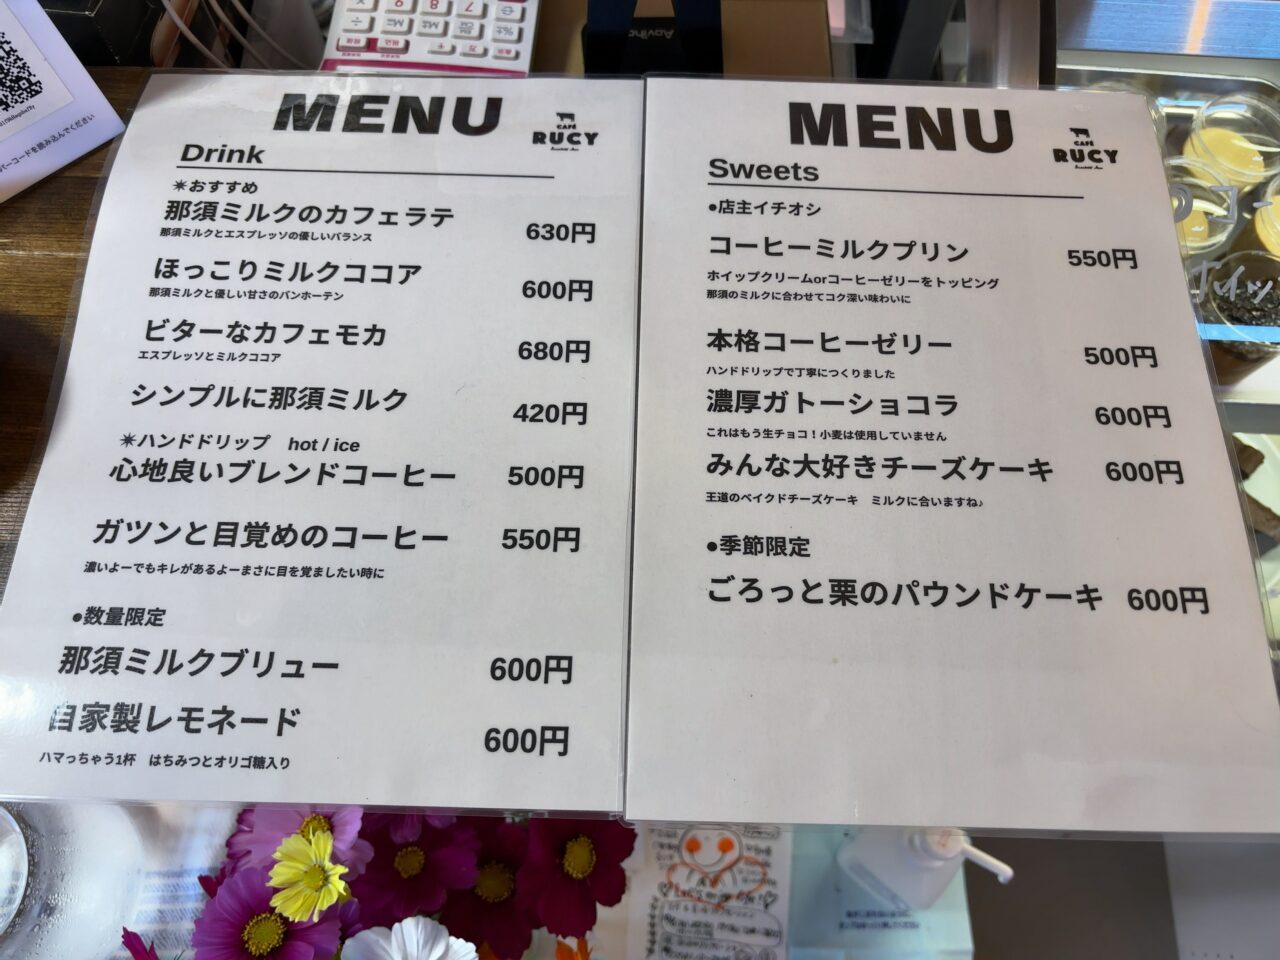 MENU
CAFÉ
RUCY
Drink
✴おすすめ
那須ミルクのカフェラテ 630円
那須ミルクとエスプレッソの優しいバランス
ほっこりミルクココア 600円
那須ミルクと優しい甘さのバンホーテン
ビターなカフェモカ 680円
エスプレッソとミルクココア
シンプルに那須ミルク 420円
✴ハンドドリップ hot / ice
心地良いブレンドコーヒー 500円
ガツンと目覚めのコーヒー 550円
濃いよーでもキレがあるよーまさに目を覚ましたい時に
●数量限定
那須ミルクブリュー 600円
自家製レモネード 600円
ハマっちゃう1杯 はちみつとオリゴ糖入り
MENU
CAFÉ
RUCY
Sweets
●店主イチオシ
コーヒーミルクプリン 550円
ホイップクリームorコーヒーゼリーをトッピング
那須のミルクに合わせてコク深い味わいに
本格コーヒーゼリー 500円
ハンドドリップで丁寧につくりました
濃厚ガトーショコラ 600円
これはもう生チョコ！小麦は使用していません
みんな大好きチーズケーキ 600円
王道のベイクドチーズケーキ ミルクに合いますね♪
●季節限定
ごろっと栗のパウンドケーキ 600円